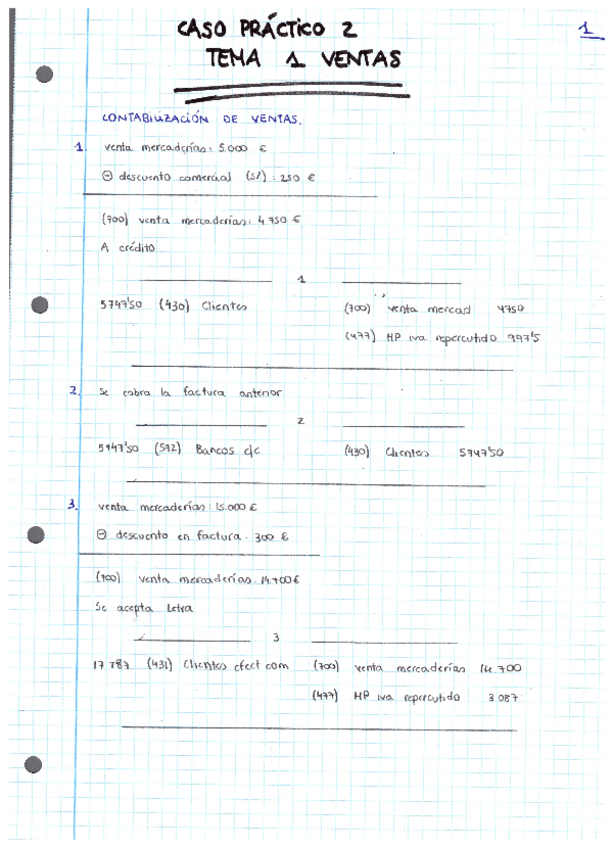 CASO PRÁCTICO 2
1
TEMA 1 VENTAS
CONTABILIZACIÓN DE VENTAS.
1. venta mercaderías: 5.000 €
⊖ descuento comercial (5%): 250 €
(700) venta mercaderías: 4.750 €
A crédito
1
5747'50 (430) Clientes (700) venta mercad 4750
(477) HP iva repercutido 997'5
2. Se cobra la factura anterior
2
5747'50 (572) Bancos c/c (430) Clientes 5747'50
3. venta mercaderías: 15.000 €
⊖ descuento en factura. 300 €
(700) venta mercaderías. 14.700 €
Se acepta Letra
3
17 787 (431) Clientes efect com (700) venta mercaderías 14.700
(477) HP iva repercutido 3.087